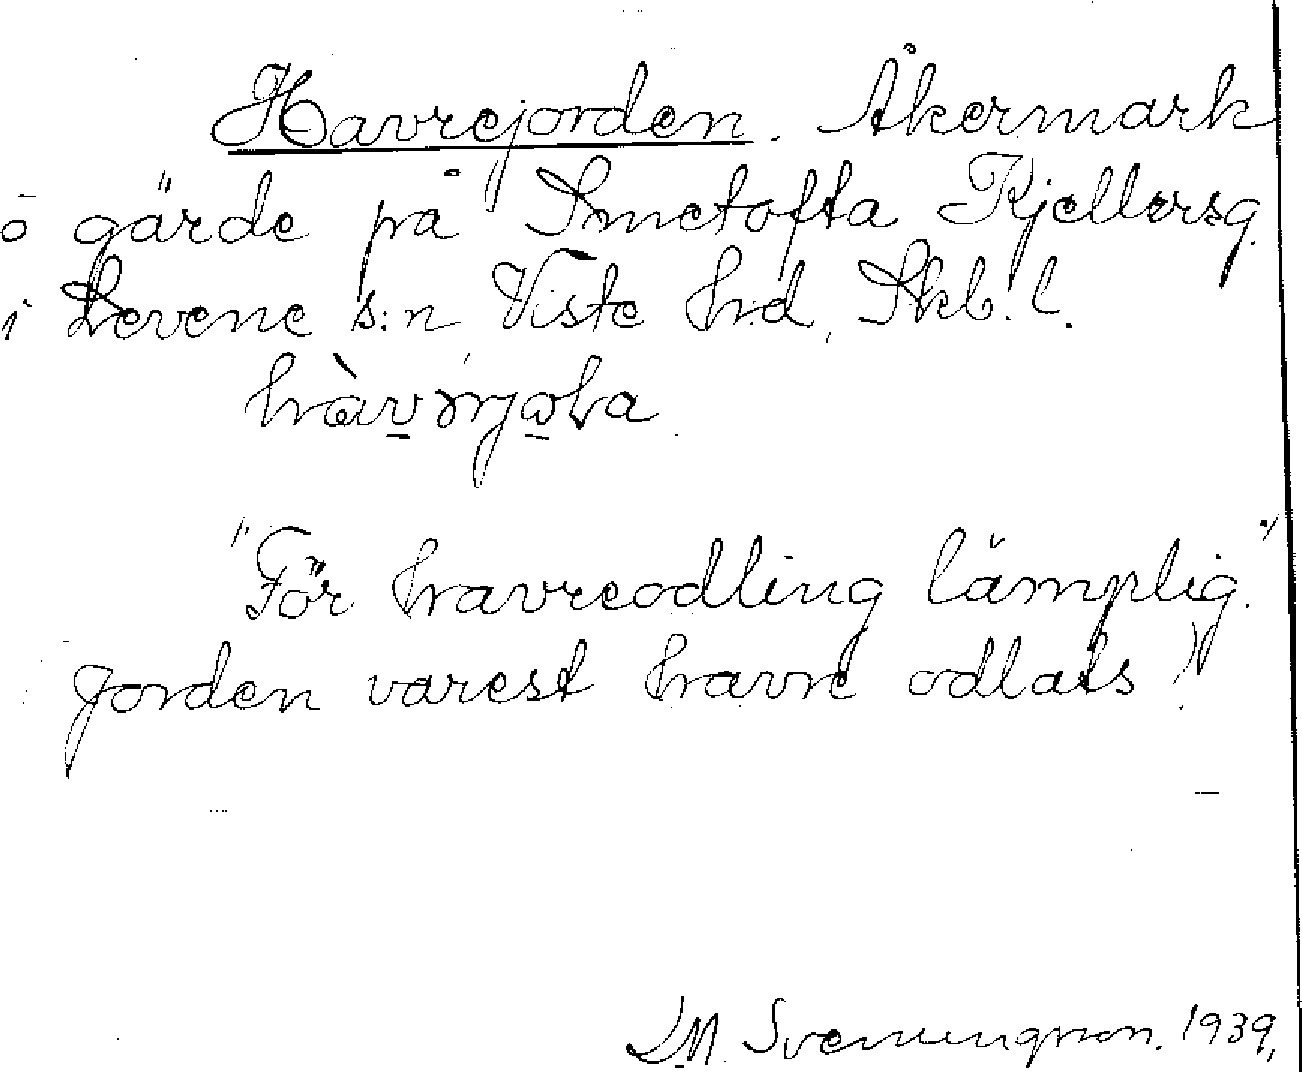 Havrejorden. Åkermark
o gärde på Smetofta Kjellersg.
i Levene s:n Viste hd, Skb. l.

"För havreodling lämplig."
Jorden varest havre odlats)
LM. Svenungsson. 1939,